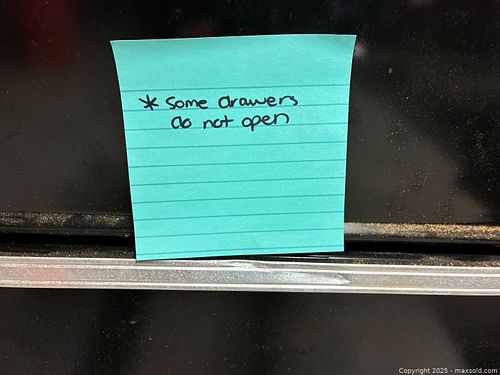 * some drawers
do not open
Copyright 2025 - maxsold.com